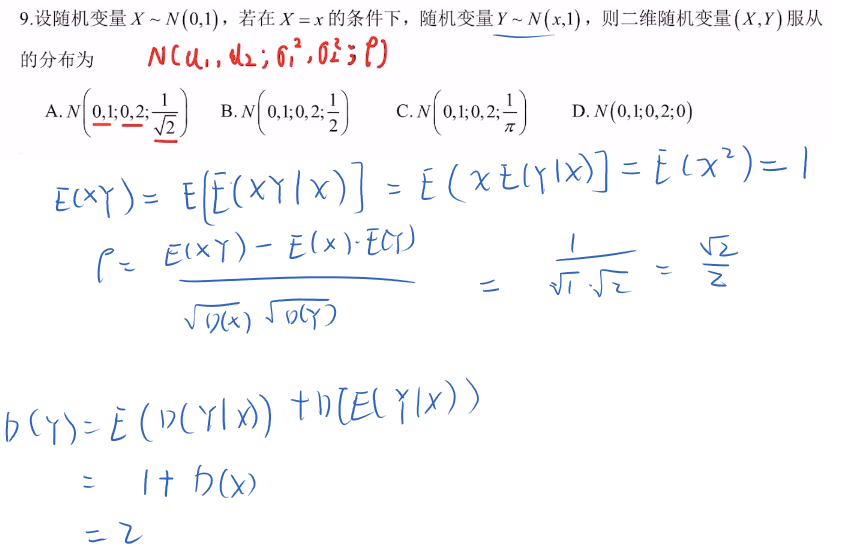 9.设随机变量 X ~ N(0,1)，若在 X = x 的条件下，随机变量 Y ~ N(x,1)，则二维随机变量 (X,Y) 服从
的分布为 N(μ₁, μ₂; σ₁², σ₂²; ρ)
A. N(0,1;0,2;1/√2) B. N(0,1;0,2;1/2) C. N(0,1;0,2;1/π) D. N(0,1;0,2;0)
E(XY) = E[E(XY|X)] = E(XE(Y|X)] = E(X²) = 1
ρ = (E(XY) - E(X)·E(Y))/(√D(X) √D(Y)) = 1/(√1·√2) = √2/2
D(Y) = E(D(Y|X)) + D[E(Y|X))
= 1 + D(X)
= 2